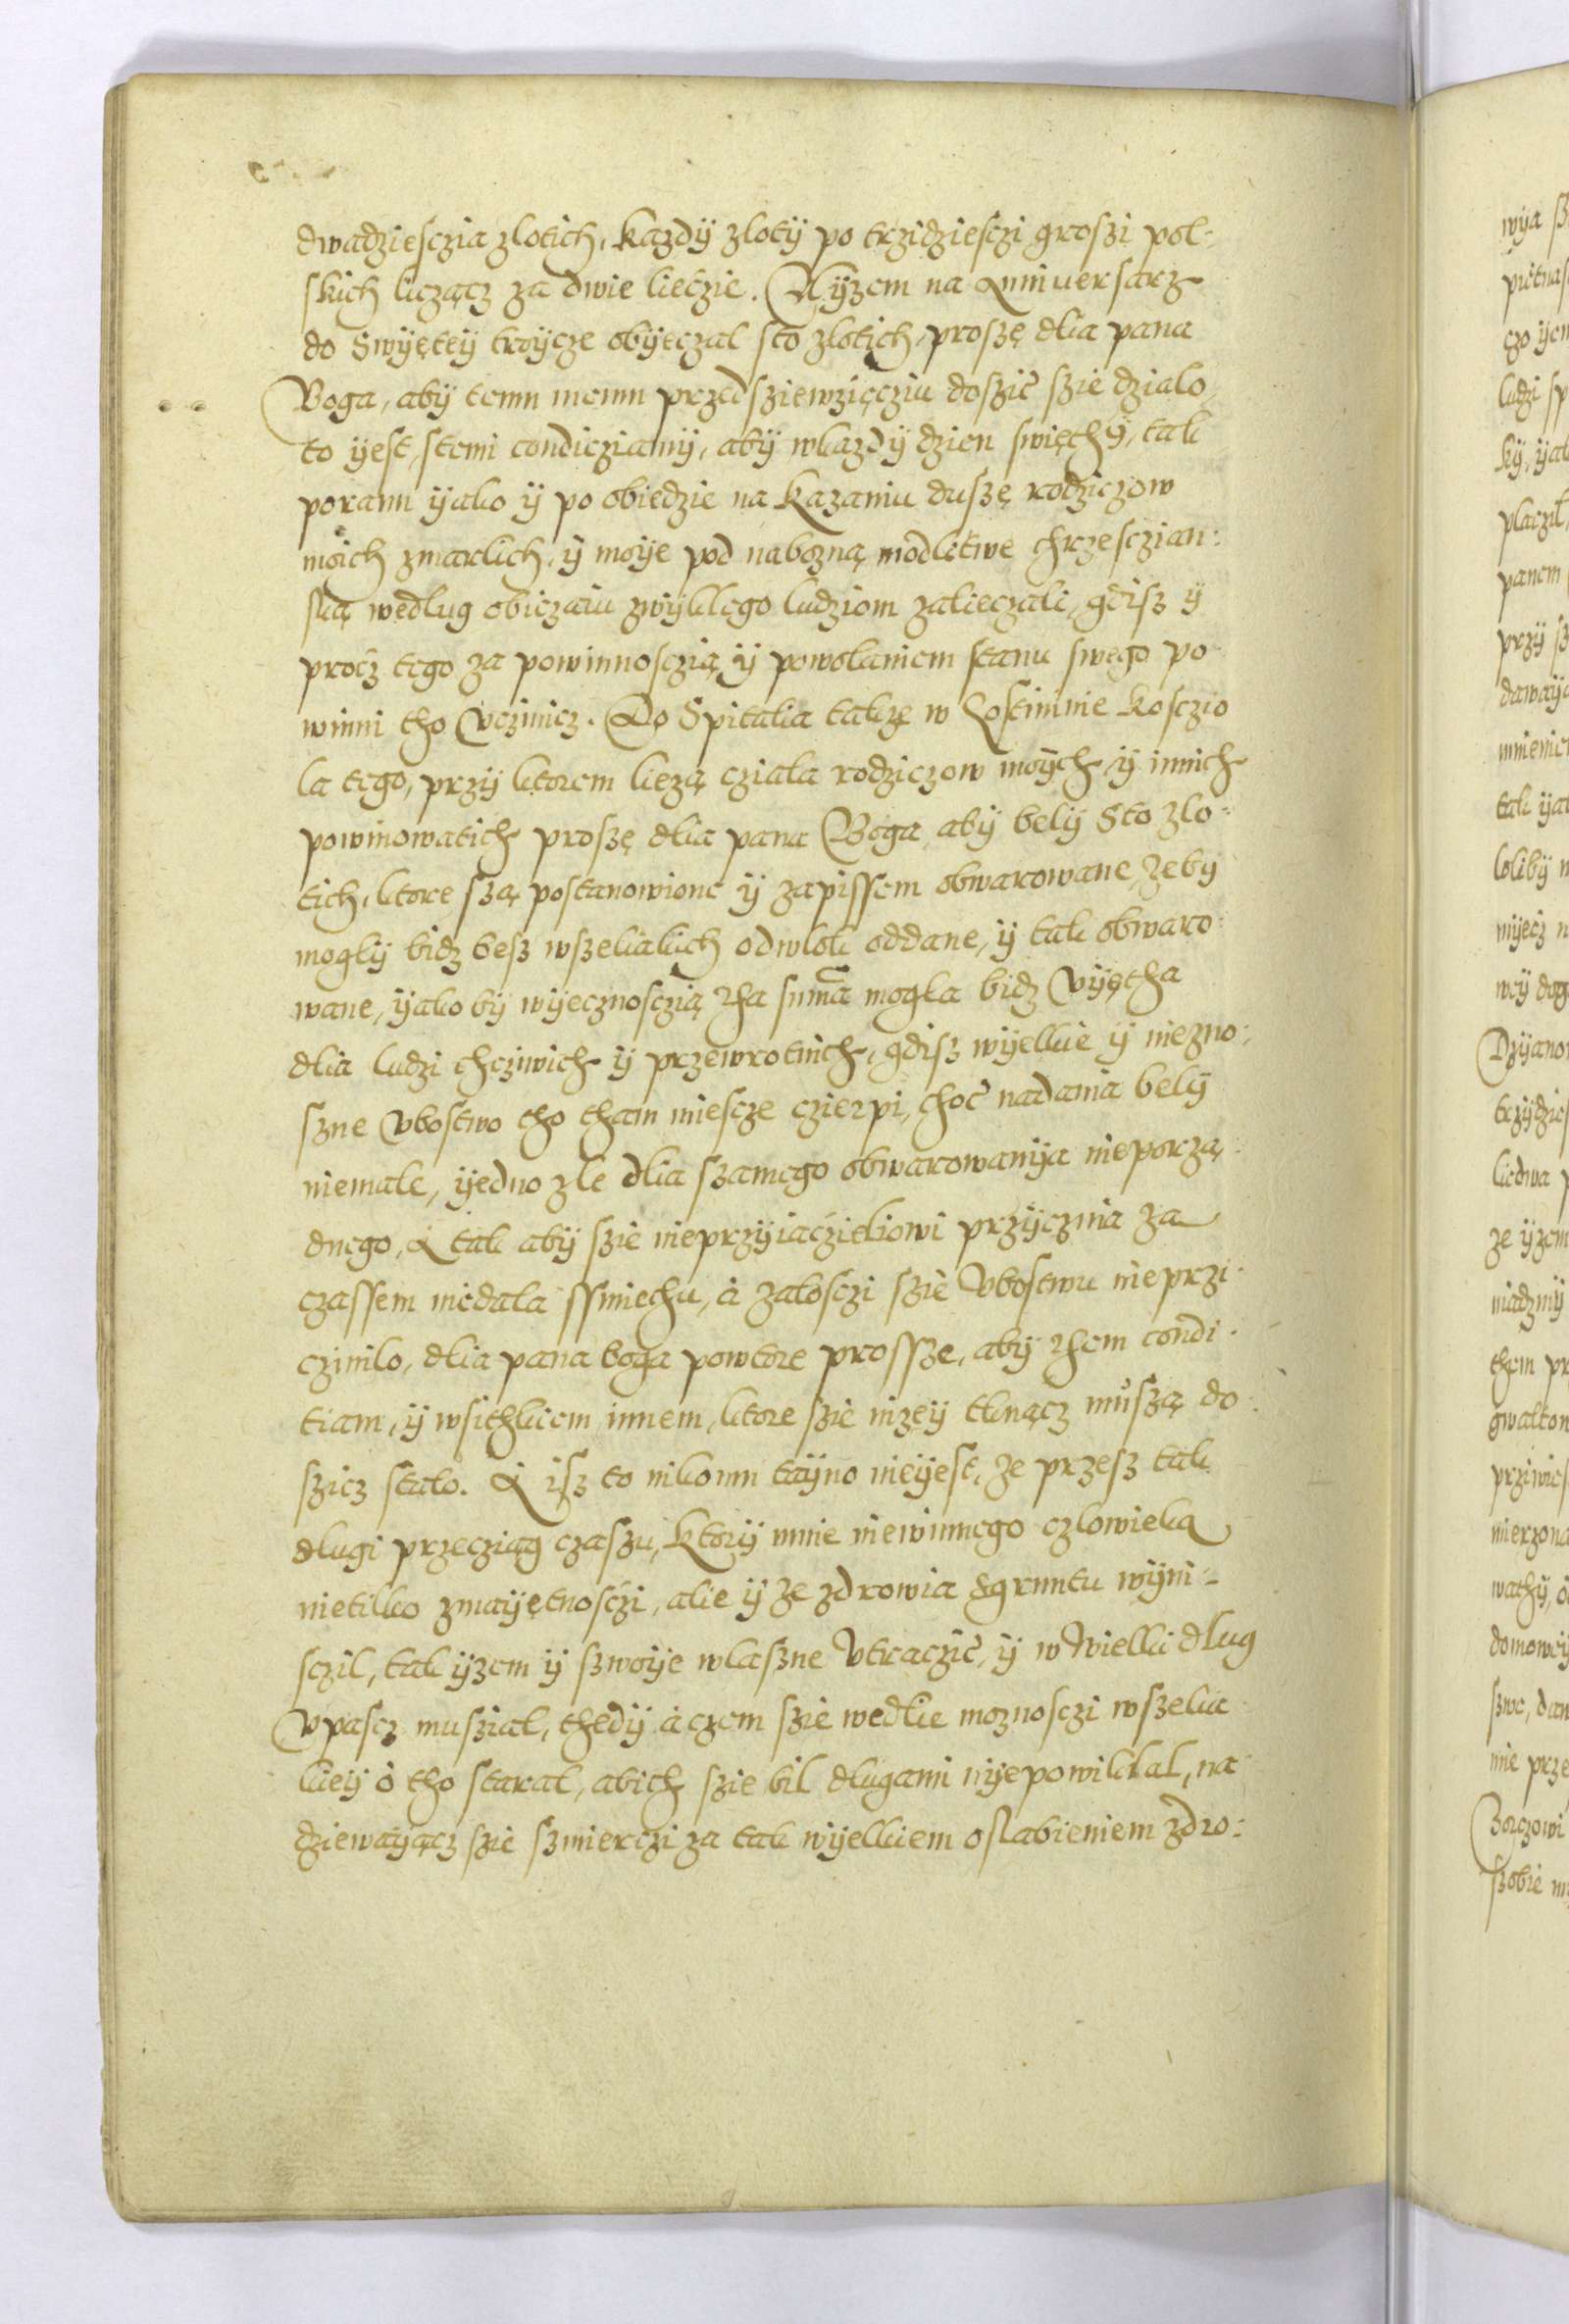 dwadziesczia zlotich, kazdÿ zlotÿ po trzidziesczi groszi pol-
skich licząncz za dwie liedzie. A ÿzem na Anniuersarz
do Swÿętëÿ troÿcze obÿeczal sto zlotich, proszę dlia pana
Boga, abÿ temu memu przedsziewzięcziu doszić szie dzialo,
to ÿest, stemi condicziamÿ, abÿ wkazdÿ dzien swięthÿ, tak
poranu ÿako ÿ po obiedzie na kazaniu duszę rodziczow
moich zmarlich, ÿ moÿe pod nabozną modlitwe chrzesczian:
ską wedlug obiczaiu zwÿklego ludziom zalieczali, gdisz ÿ
procz tego za powinnosczią ÿ powolaniem stanu swego po
winni tho vczinicz. Do Spitalia takze w Lostinnie koscziо
la tego, przÿ ktorem liezą cziala rodziczow moÿch ÿ innich
powinowatich proszę dlia pana Boga, abÿ belÿ Sto zlo-
tich, ktore szą postanowione ÿ zapissem obwarowane, zebÿ
moglÿ bidz besz wszeliakich odwlok oddane, ÿ tak obwaro
wane, ÿako bÿ wÿecznosczią tha suma mogla bidz vÿętha
dlia ludzi chcziwich ÿ przewrotnich, gdisz wÿelkie ÿ niezno:
szne vbostwo tho tham miescze czierpi, choć nadania belÿ
niemale, ÿedno zle dlia szamego obwarowanÿa nieporzą:
dnego, A tak abÿ szie nieprzÿiaczieliowi przÿczina za
czassem niedala ssmiechu, a zalosczi szie Vbostwu nieprzi-
czinilo, dlia pana boga powtore prossze, abÿ them condi-
tiam, ÿ wsithkiem innem, ktore szie nizeÿ tknącz muszą do-
szicz stalo. A isz to nikomu taÿno nieÿest, ze przesz tak
dlugi przecziąg czaszu, ktorÿ mnie niewinnego czlowieka
nietilko zmaÿętnosczi, alie ÿ ze zdrowia zgruntu wÿni-
sczil, tak ÿzem ÿ szwoÿe wlaszne vtraczić, ÿ w wielki dlug
vpascz musial, thedÿ aczem szie wedlie moznosczi wszelia
kieÿ o tho staral, abich szie bil dlugami nÿepowiklal, na
dziewaÿącz szie szmierczi za tak wÿelkiem oslabieniem zdro: